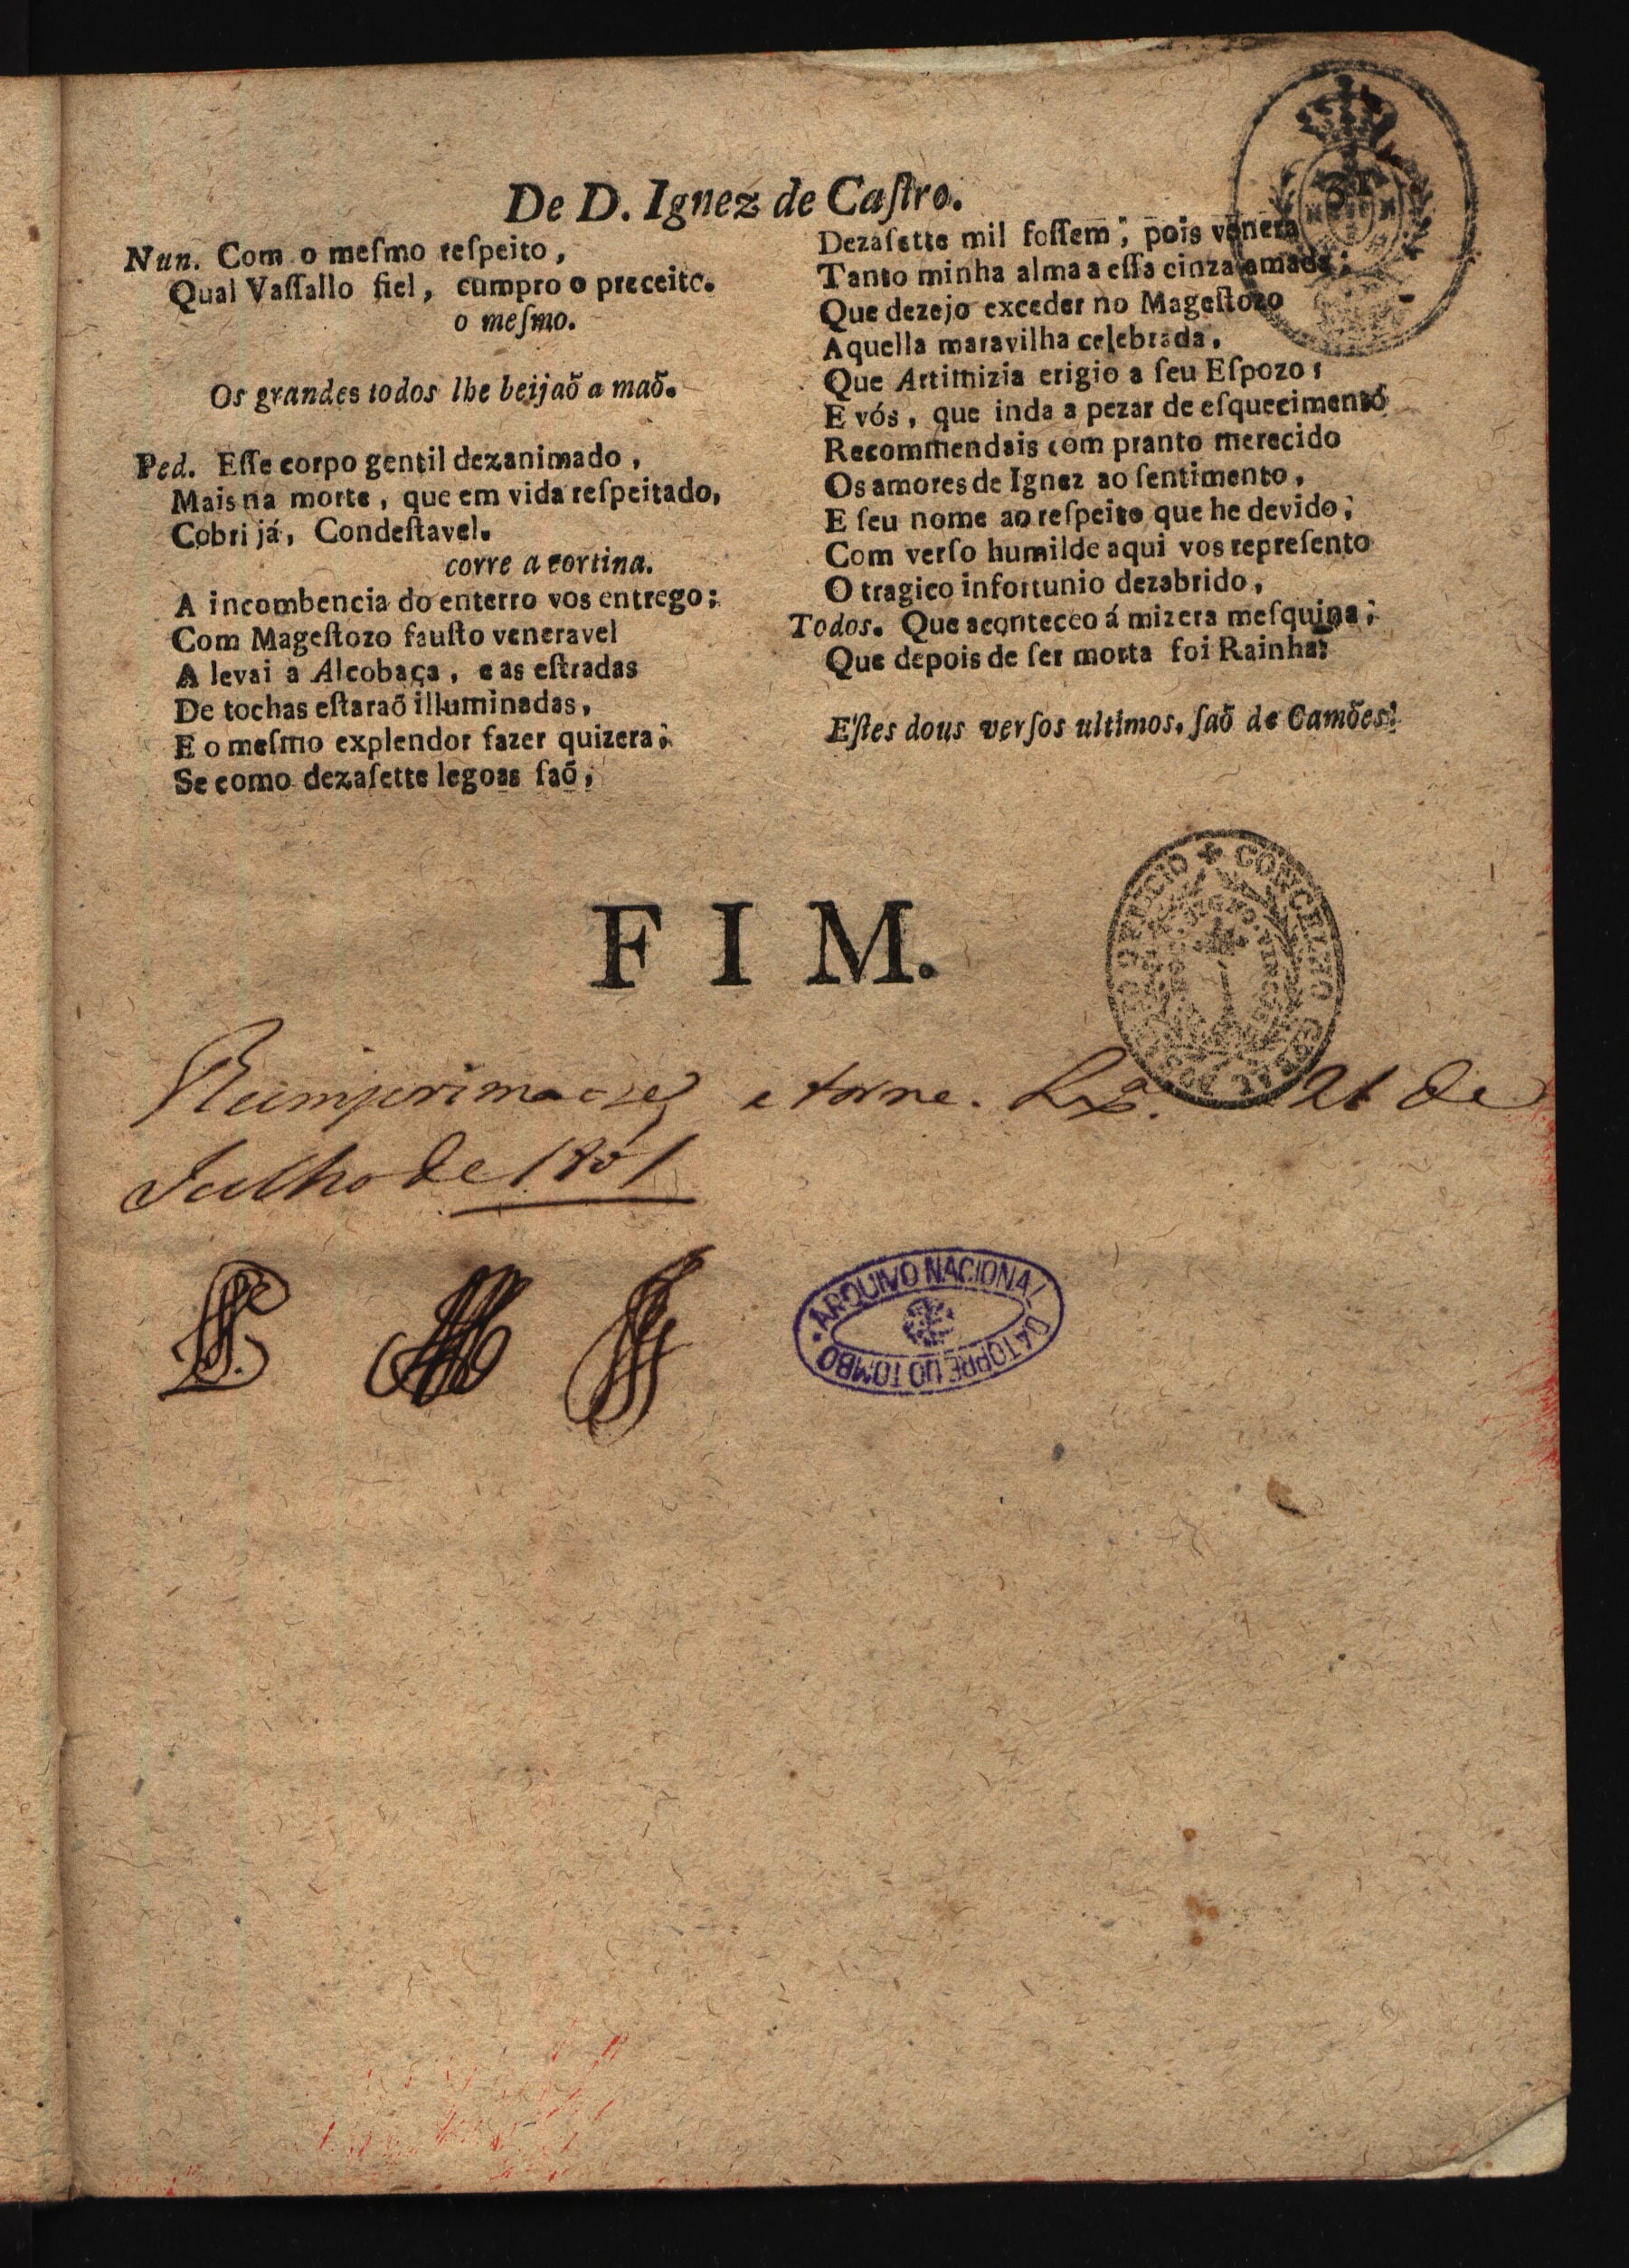 De D. Ignez de Caſtro.
31
Nun. Com o meſmo reſpeito,
Qual Vaſſallo fiel, cumpro o preceito.
o meſmo.
Os grandes todos lhe beijaõ a maõ.
Ped. Eſſe corpo gentil dezanimado,
Mais na morte, que em vida reſpeitado,
Cobri já, Condeſtavel.
corre a cortina.
A incombencia do enterro vos entrego:
Com Mageſtozo fauſto veneravel
A levai a Alcobaça, e as eſtradas
De tochas eſtaraõ illuminadas,
E o meſmo explendor fazer quizera;
Se como dezaſette legoas ſaõ,
Dezaſette mil foſſem; pois venera
Tanto minha alma a eſſa cinza amada;
Que dezejo exceder no Mageſtozo
Aquella maravilha celebrada,
Que Artimizia erigio a ſeu Eſpozo;
E vós, que inda a pezar de eſquecimento
Recommendais com pranto merecido
Os amores de Ignez ao ſentimento,
E ſeu nome ao reſpeito que he devido;
Com verſo humilde aqui vos repreſento
O tragico infortunio dezabrido,
Todos. Que aconteceo á mizera meſquina;
Que depois de ſer morta foi Rainha:
Eſtes dous verſos ultimos, ſaõ de Camões:
FIM.
Reimprima-se, e torne. Lxª. 21 de
Julho de 1801
ARQUIVO NACIONAL DA TORRE DO TOMBO